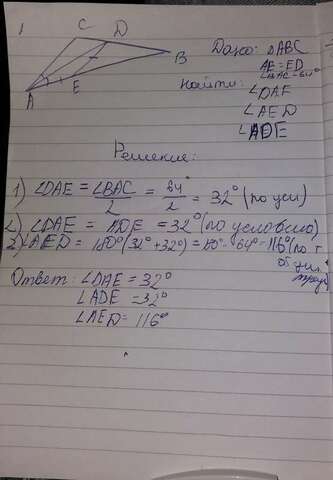 1
C D
B
A E
Дано: △ABC
AE = ED
∠BAC = 64°
Найти:
∠DAE
∠AED
∠ADE
Решение:
1) ∠DAE = ∠BAC/2 = 64/2 = 32° (по усл)
2) ∠DAE = ADE = 32° (по условию)
3) ∠AED = 180° (32° + 32°) = 180° - 64° = 116° (по т
Ответ: ∠DAE = 32°
∠ADE = 32°
∠AED = 116°